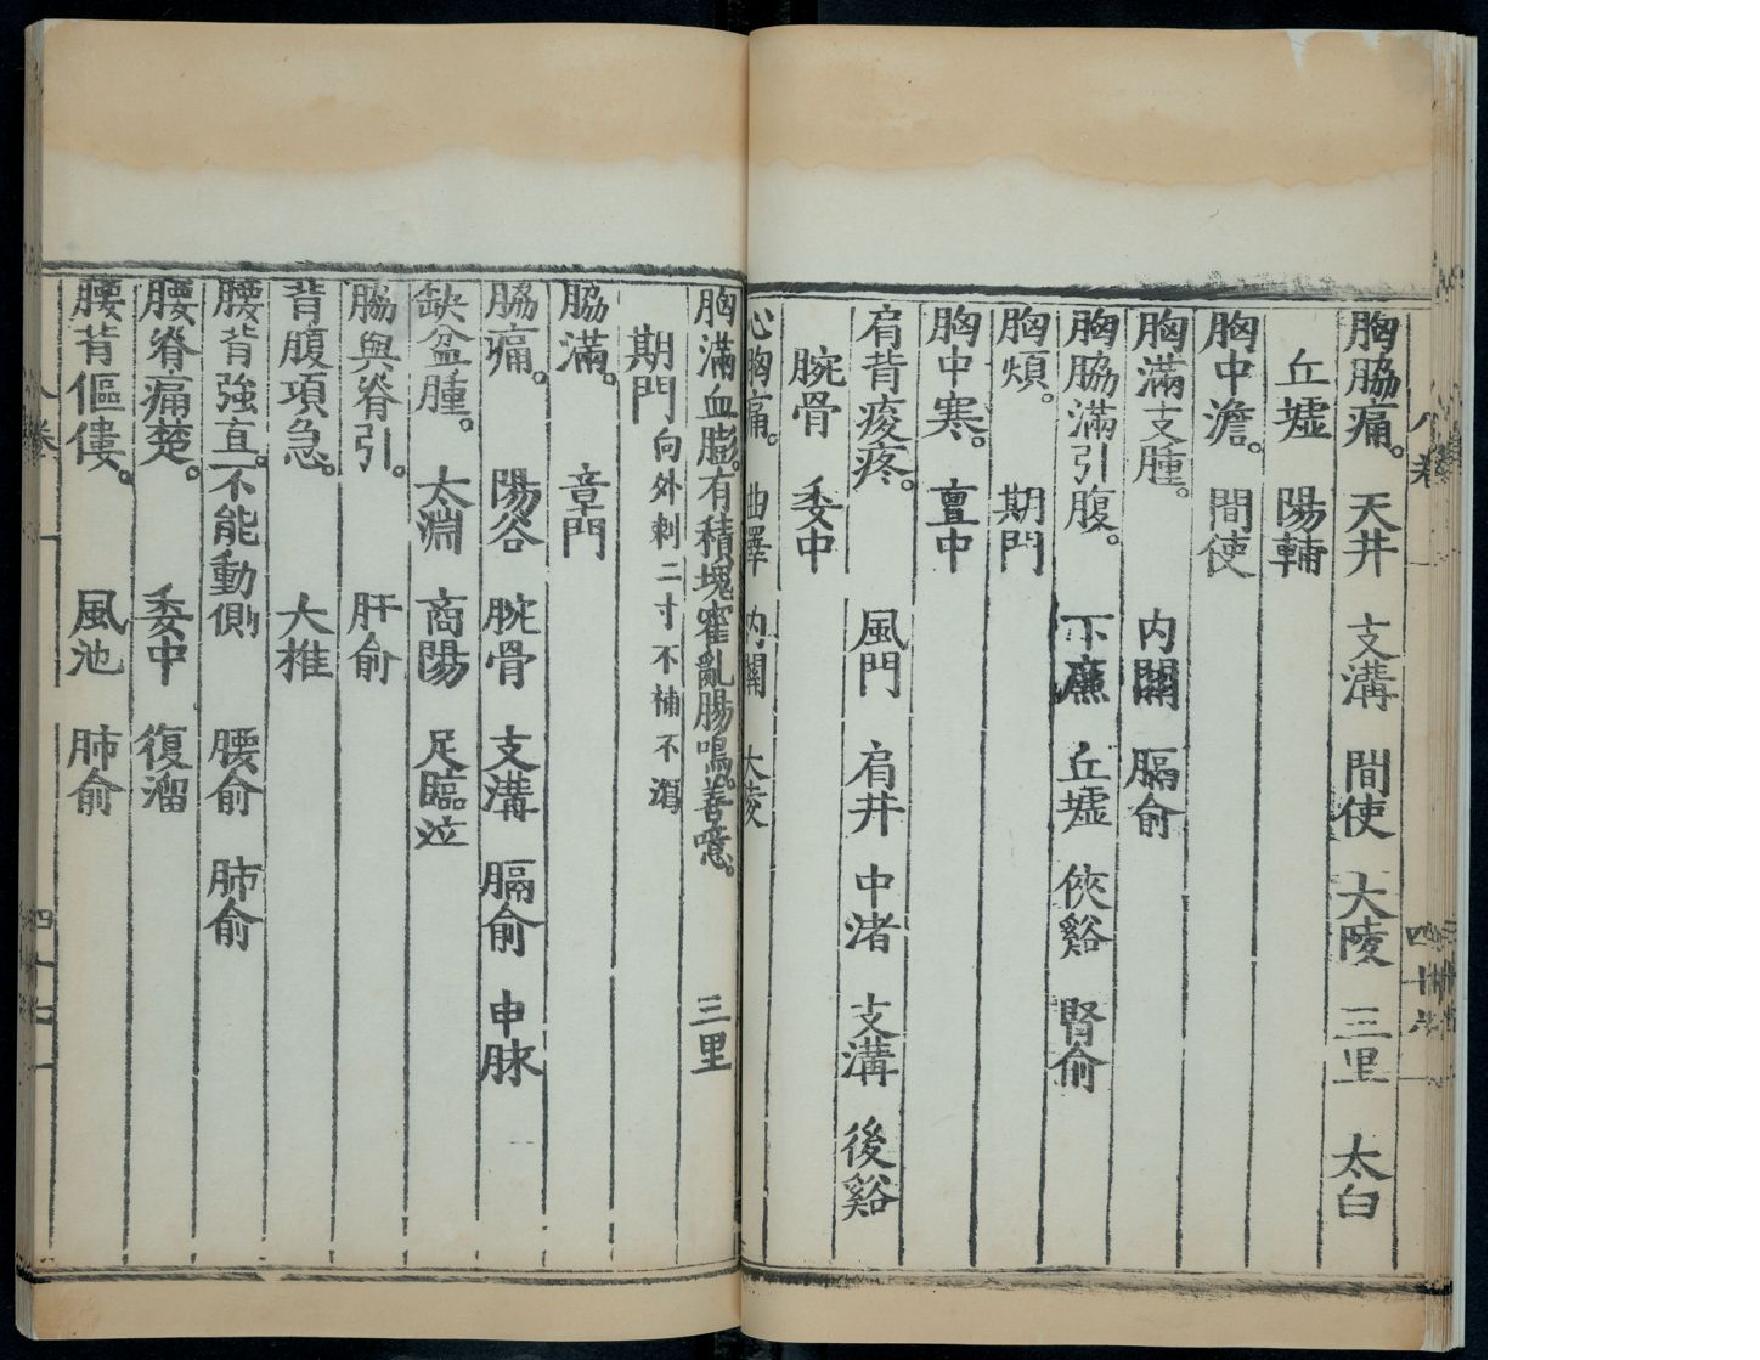 胸脇痛。 天井 支溝 間使 大陵 三里 太白
丘墟 陽輔
胸中澹。 間使
胸滿支腫。 内關 膈俞
胸脇滿引腹。 下廉 丘墟 俠谿 腎俞
胸煩。 期門
胸中寒。 亶中
肩背痠疼。 風門 肩井 中渚 支溝 後谿
腕骨 委中
心胸痛。 曲澤 内關 大陵
胸滿血膨。有積塊霍亂腸鳴。善噫。 三里
期門 向外刺二寸不補不瀉
脇滿。 章門
脇痛。 陽谷 腕骨 支溝 膈俞 申脉
缺盆腫。 太淵 商陽 足臨泣
脇與脊引。 肝俞
背腹項急。 大椎
腰背強直。不能動側 腰俞 肺俞
腰脊痛楚。 委中 復溜
腰背傴僂。 風池 肺俞